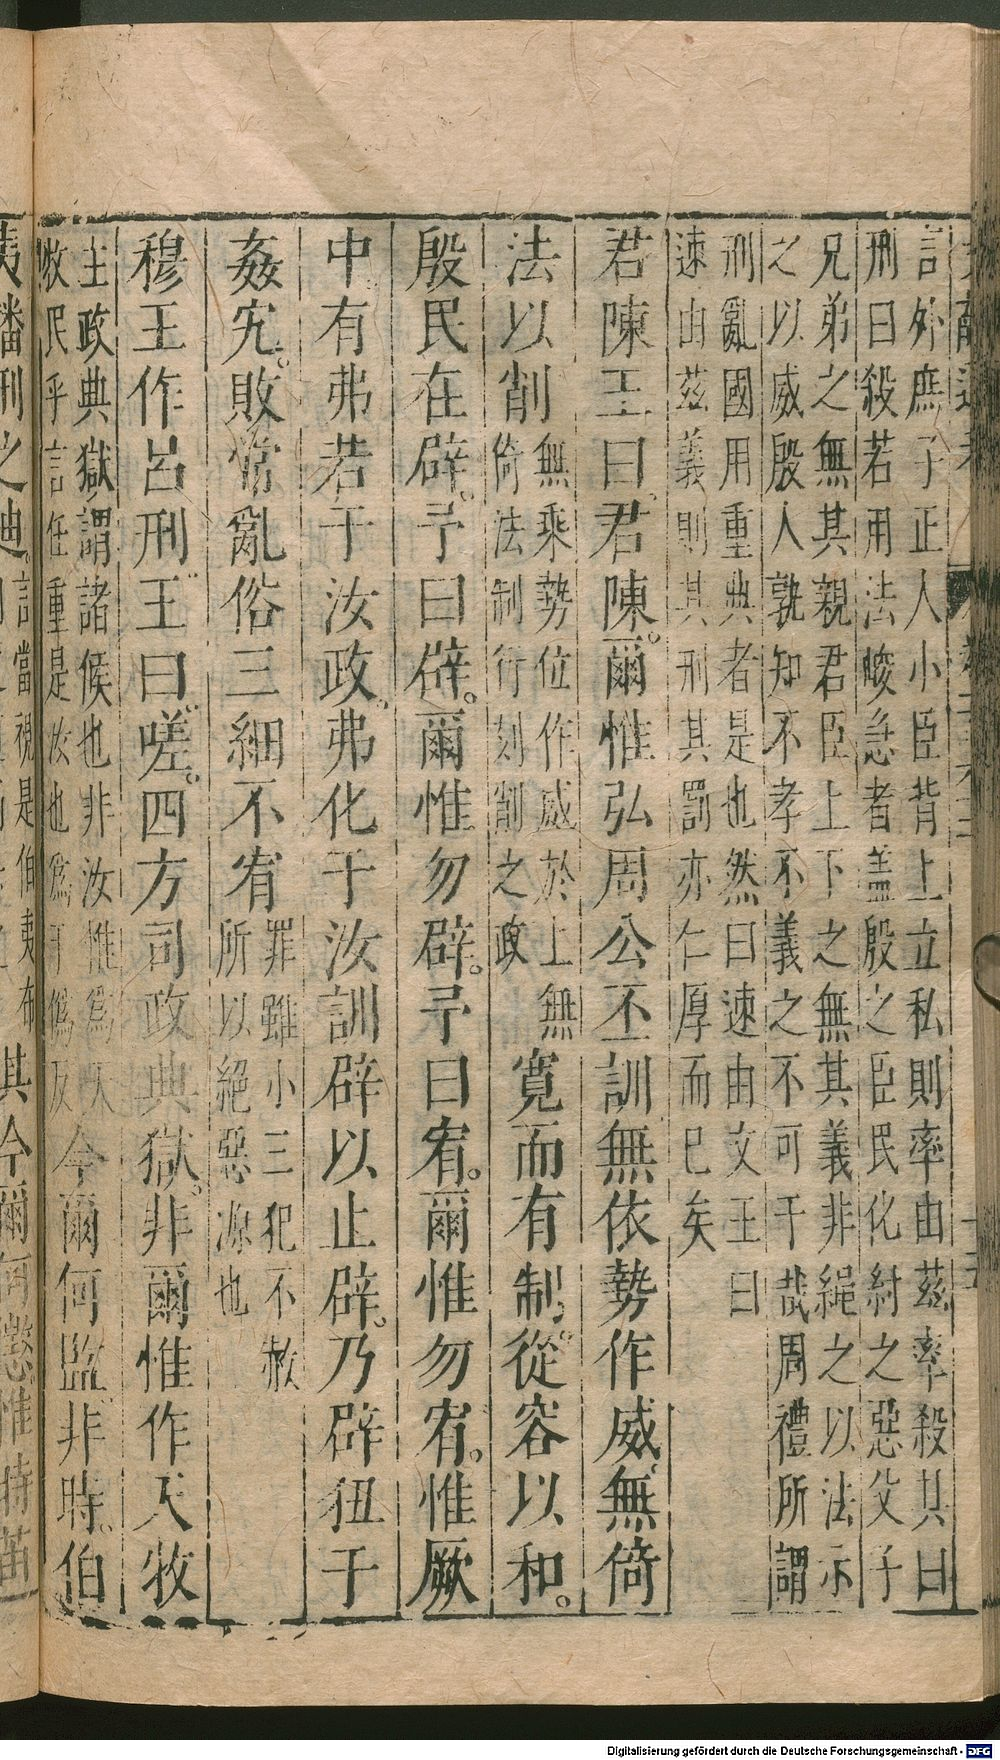 言外庶子正人小臣背上立私則率由茲率殺其曰
刑曰殺若用法峻急者蓋殷之臣民化紂之惡父子
兄弟之無其親君臣上下之無其義非繩之以法示
之以威殷人孰知不孝不義之不可于哉周禮所謂
刑亂國用重典者是也然曰速由文王曰
速由茲義則其刑其罰亦仁厚而已矣
君陳王曰君陳爾惟弘周公丕訓無依勢作威無倚
法以削無乘勢位作威於上無
倚法制行刻削之政寬而有制從容以和
殷民在辟予曰辟爾惟勿辟予曰宥爾惟勿宥惟厥
中有弗若于汝政弗化于汝訓辟以止辟乃辟狃于
姦宄敗常亂俗三細不宥罪雖小三犯不赦
所以絕惡源也
穆王作呂刑王曰嗟四方司政典獄非爾惟作天牧
主政典獄謂諸侯也非汝惟為天
牧民乎言任重是汝也爲于僞反今爾何監非時伯
夷播刑之迪言當視是伯夷布
其今爾何懲惟時苗
Digitalisierung gefördert durch die Deutsche Forschungsgemeinschaft - DFG